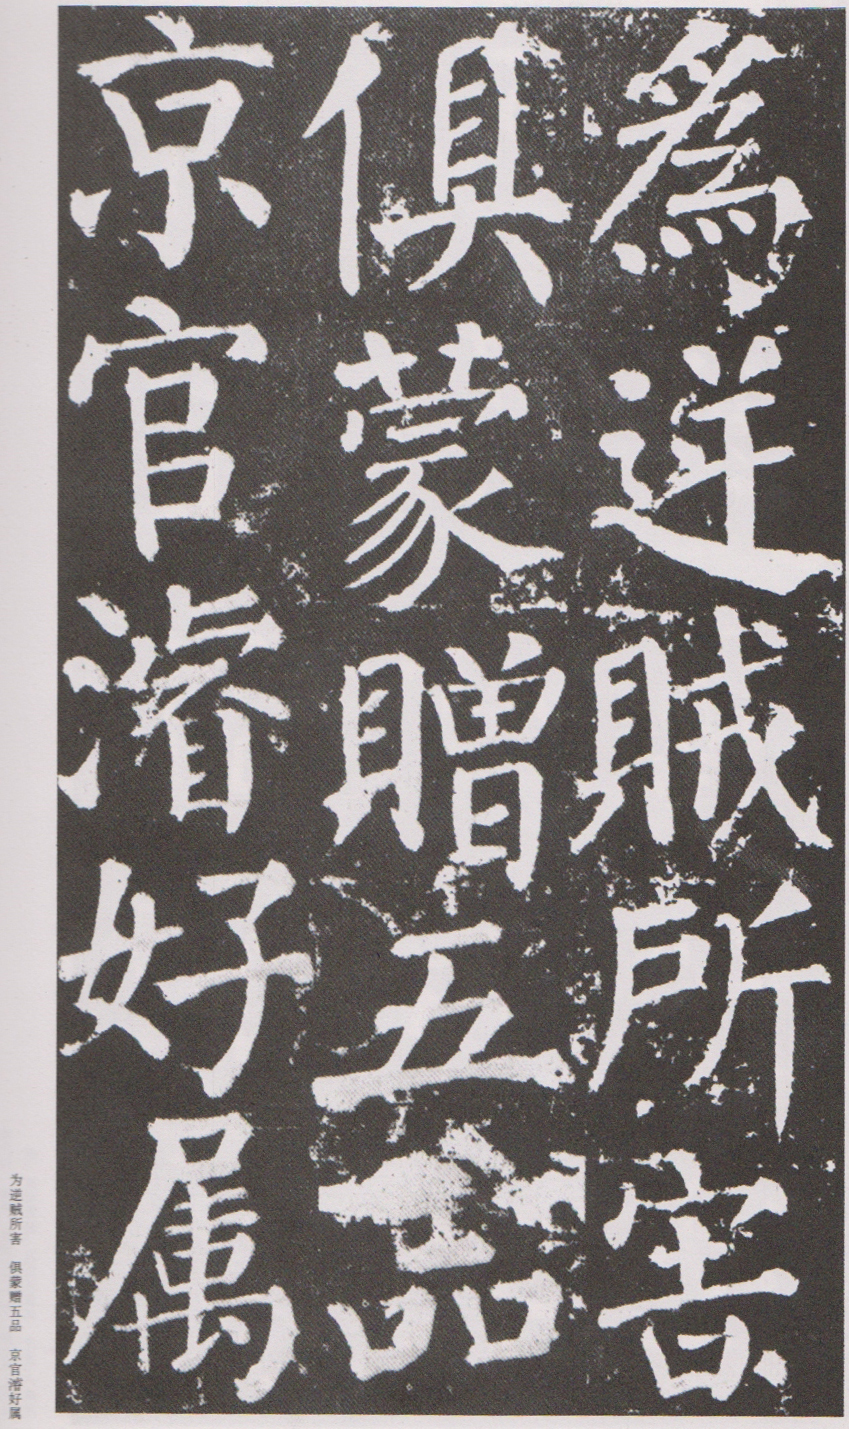 為逆賊所害
俱蒙贈五品
京官濬好属
为逆贼所害　俱蒙赠五品　京官濬好属